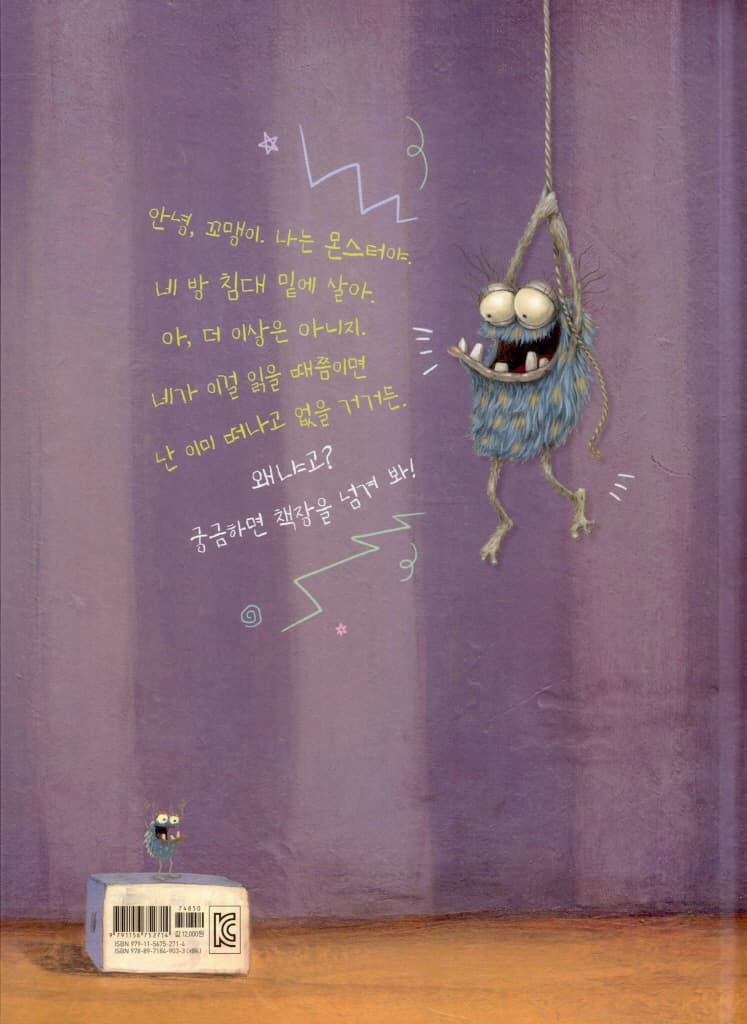 안녕, 꼬맹이. 나는 몬스터야.
네 방 침대 밑에 살아.
아, 더 이상은 아니지.
네가 이걸 읽을 때쯤이면
난 이미 떠나고 없을 거거든.
왜냐고?
궁금하면 책장을 넘겨 봐!
74850
9 791156 752714
값 12,000원
ISBN 979-11-5675-271-4
ISBN 978-89-7184-903-3 (세트)
KC